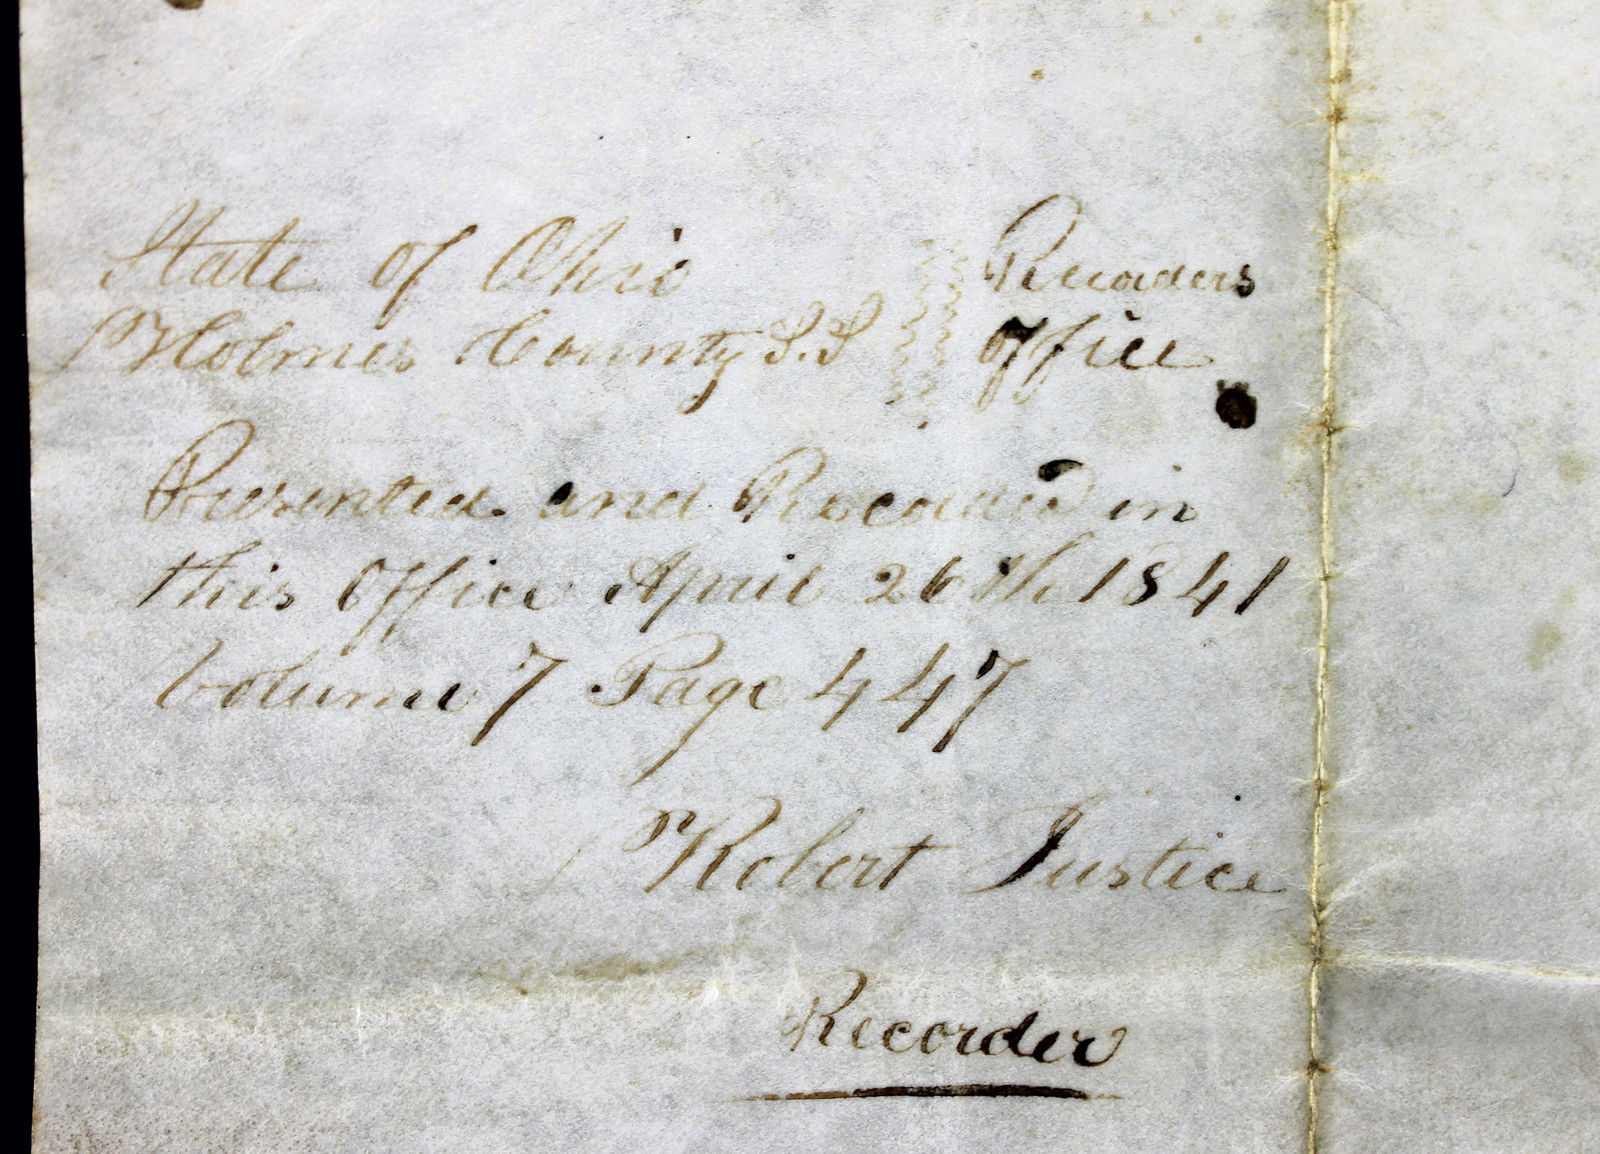 State of Ohio Recorders
Holmes County S.S Office
Presented and Recorded in
this Office April 26th 1841
Volume 7 Page 447
Robert Justice
Recorder